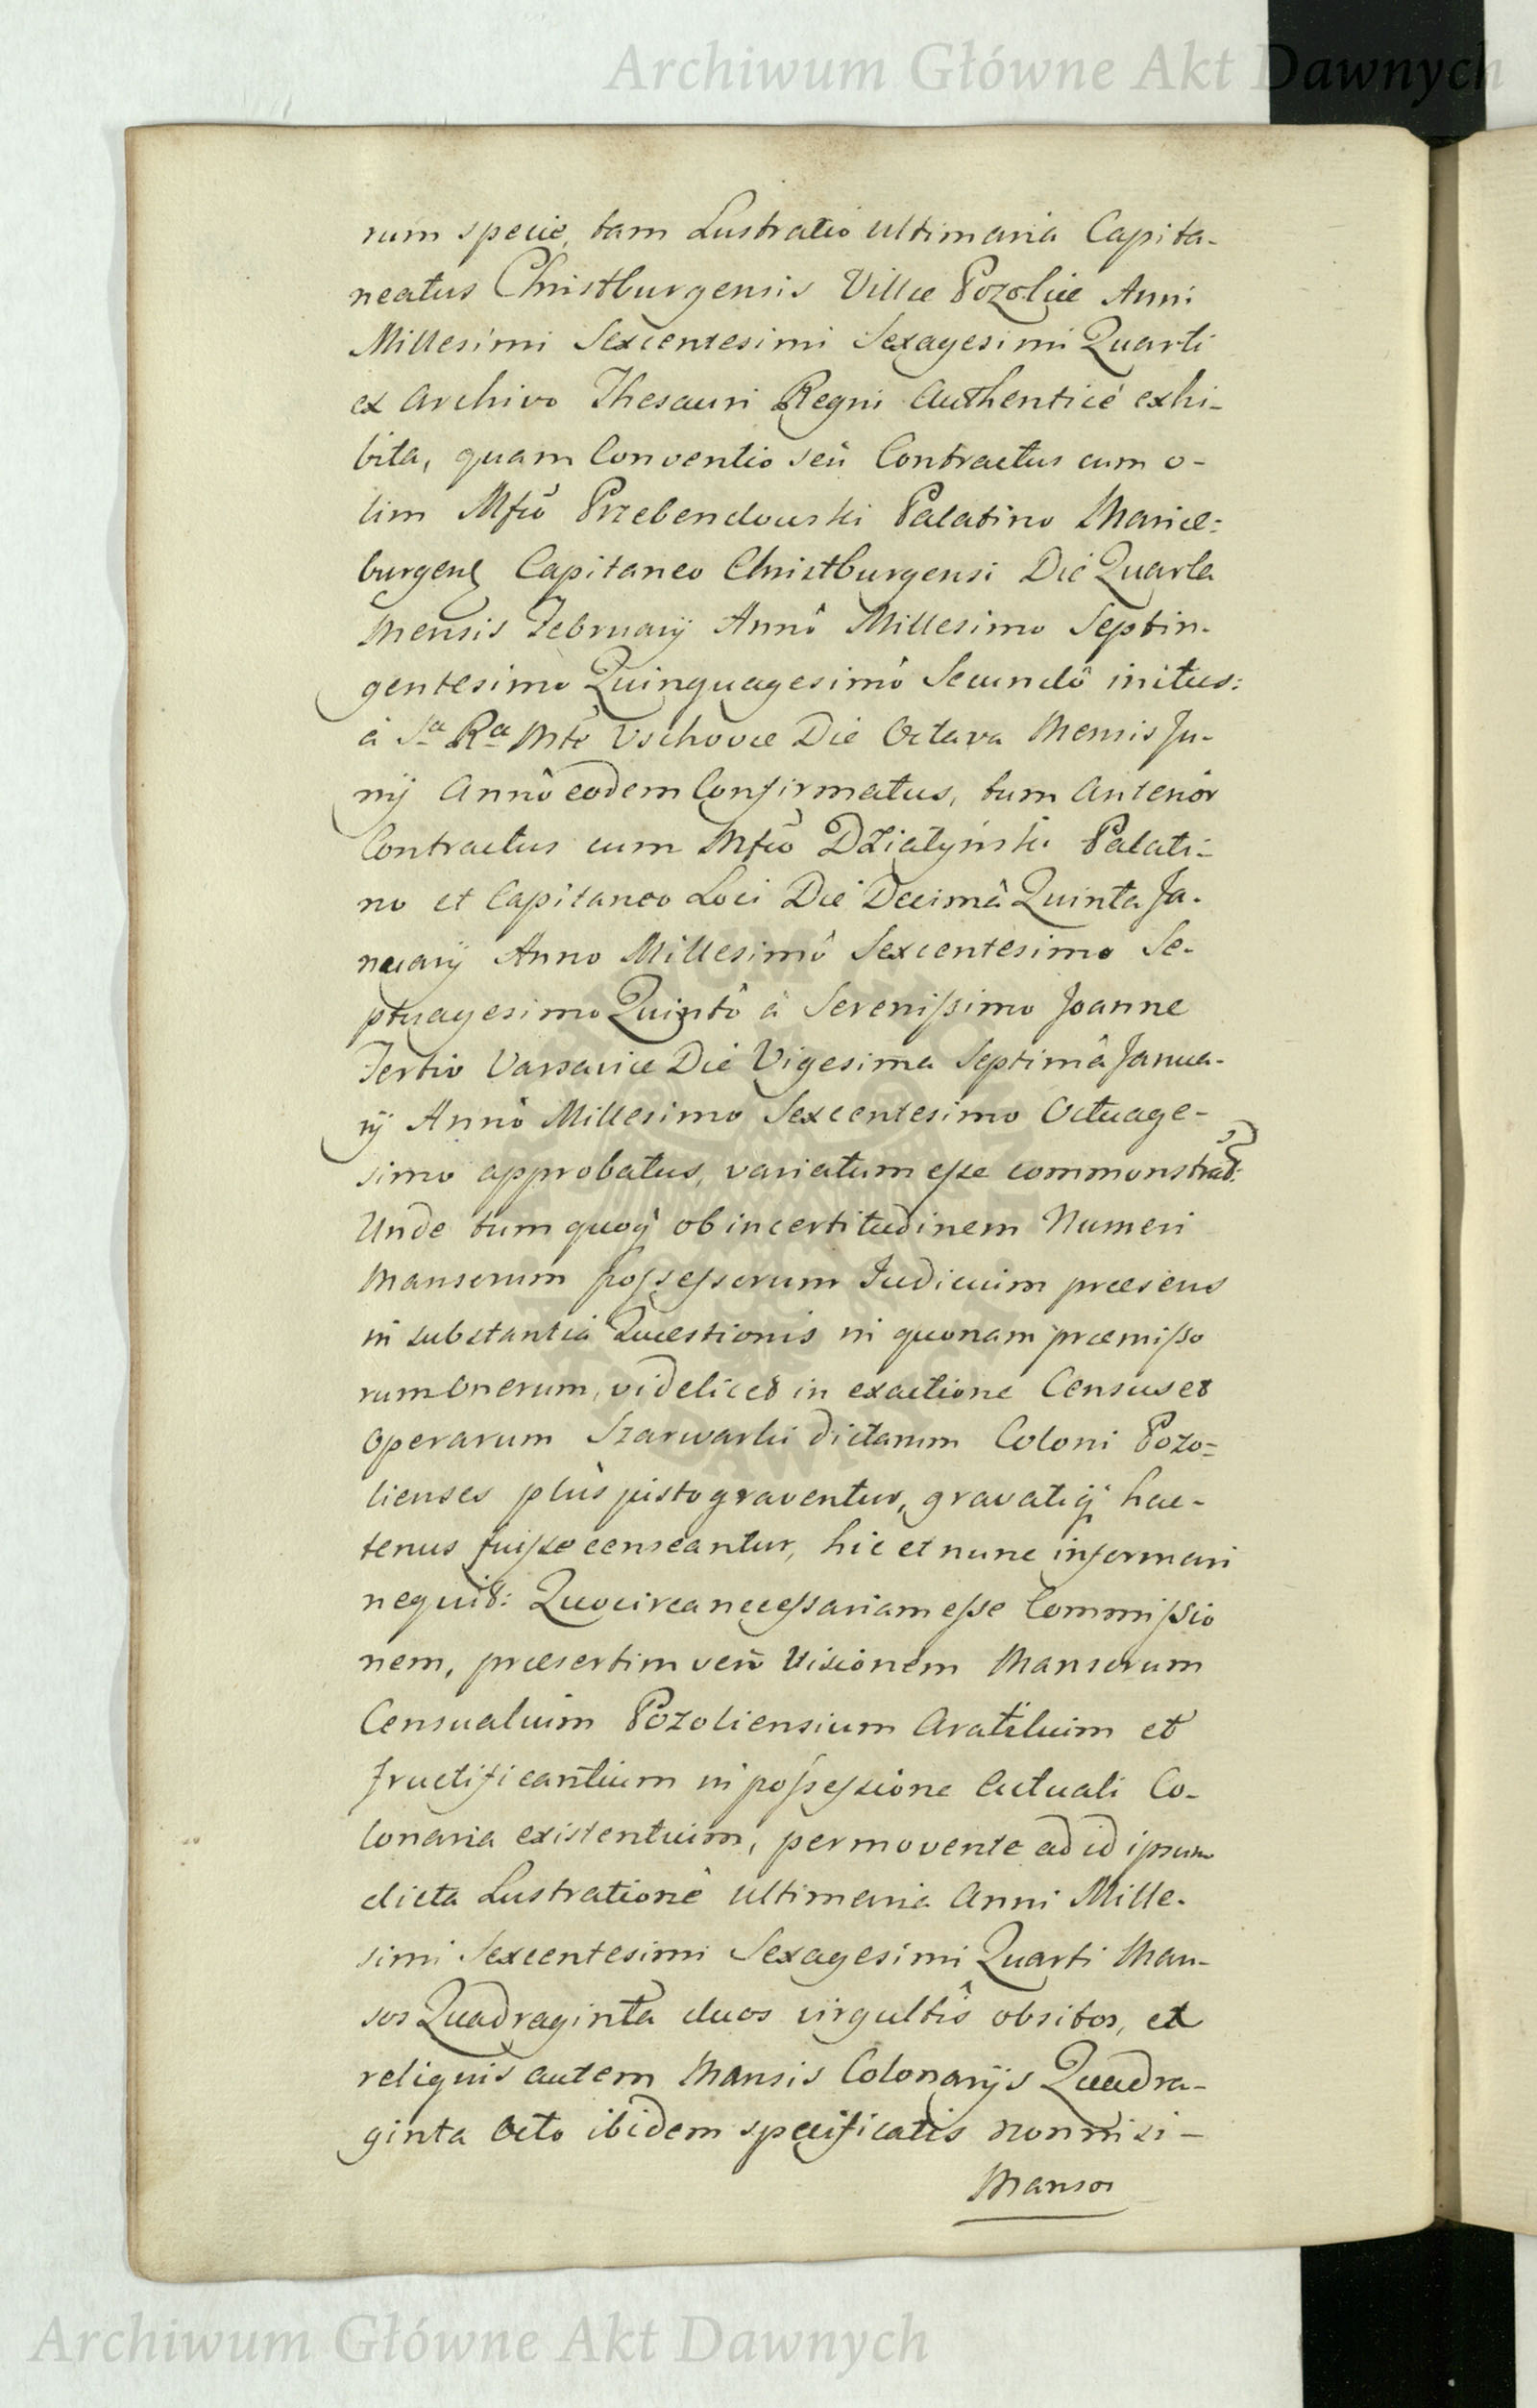 Archiwum Główne Akt Dawnych
rum specie, tam Lustratio ultimaria Capita-
neatus Christburgensis Villæ Pozoliæ Anni
Millesimi Sexcentesimi Sexagesimi Quarti
ex Archivo Thesauri Regni Authenticè exhi-
bita, quam Conventio seù Contractus cum o-
lim Mfcō Przebendowski Palatino Mariæ-
burgen Capitaneo Christburgensi Die Quarta
Mensis February Annô Millesimo Septin-
gentesimo Quinquagesimô Secundô initus:
à Sa Ra Mte Vschovæ Die Octava Mensis Ju-
nij Annô eodem Confirmatus, tum Anterior
Contractus cum Mfcō Działyński Palati-
no et Capitaneo Loci Die Decimâ Quinta Ja-
nuarij Anno Millesimô Sexcentesimo Se-
ptuagesimo Quintô à Serenissimo Joanne
Tertio Varsaviæ Die Vigesima Septimâ Janua-
rij Annô Millesimo Sexcentesimo Octuage-
simo approbatus, variatum esse commonstrat.
Unde tum quoq ob incertitudinem Numeri
Mansorum possessorum Judicium præsens
in substantia Quæstionis in quonam præmisso
rum Onerum, videlicet in exactione Census et
Operarum Szarwarki dictarum Coloni Pozo-
lienses plùs justo graventur, gravatiq hac-
tenus fuisse censeantur, hic et nunc informari
nequit: Quocirca necessariam esse Commissio
nem, præsertim verò Visionem Mansorum
Censualium Pozoliensium Aratilium et
fructificantium in possessione Actuali Co-
lonaria existentium, permovente ad id ipsum
dicta Lustratione ultimaria Anni Mille-
simi Sexcentesimi Sexagesimi Quarti Man-
sos Quadraginta duos virgultis obsitos, et
reliquis autem Mansis Colonarijs Quadra-
ginta Octo ibidem specificatis nonnisi -
Mansos
Archiwum Główne Akt Dawnych